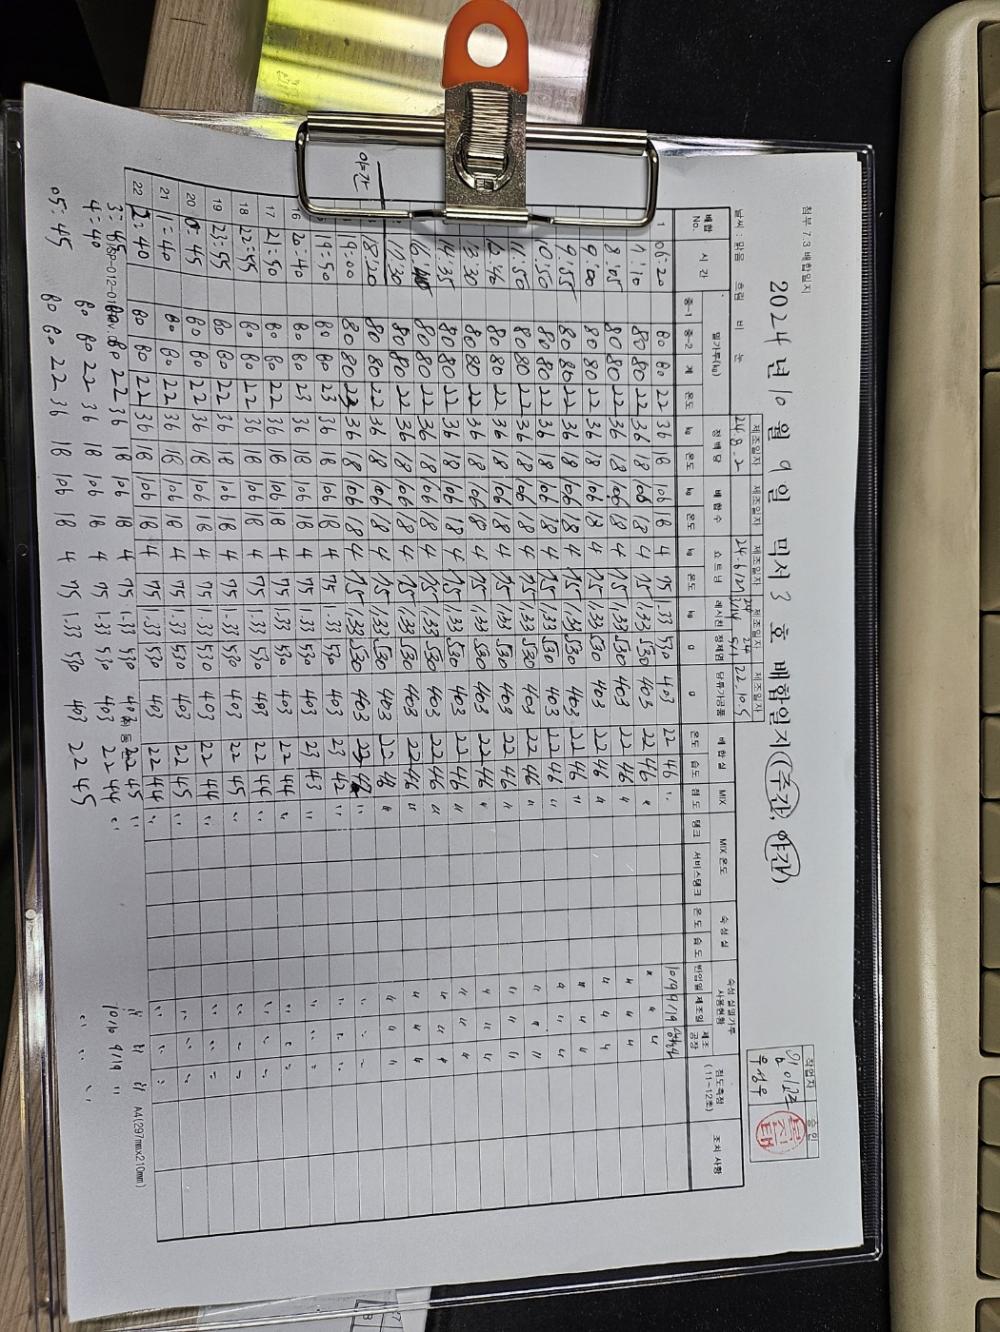 첨부 7.3 배합일지
2024년 10월 9일 믹서 3호 배합일지(주간, 야간)
작업자 승인
우성우
날씨 : 맑음 흐림 비 눈
제조일자 제조일자 제조일자 제조일자 제조일자
24.8.2
배합 No. 시간 밀가루(kg) 정백당 배합수 쇼트닝 레시틴 정제염 당류가공품 배합실 MIX MIX 온도 숙성실 숙성실밀가루 사용현황 제조공장 점도측정 (11~12초) 조치 사항
중-1 중-2 계 온도 kg 온도 kg 온도 kg 온도 kg g 온도 습도 점도 탱크 서비스탱크 온도 습도 반입일 제조일
1 06:20 80 80 22 36 18 106 18 4 75 1.33 530 403 22 46 〃 10/9 9/19
7:10 80 80 22 36 18 106 18 4 75 1.33 530 403 22 46 〃 〃 〃 〃
8:05 80 80 22 36 18 106 18 4 75 1.33 530 403 22 46 〃 〃 〃 〃
9:00 80 80 22 36 18 106 18 4 75 1.33 530 403 22 46 〃 〃 〃 〃
9:55 80 80 22 36 18 106 18 4 75 1.33 530 403 22 46 〃 〃 〃 〃
10:50 80 80 22 36 18 106 18 4 75 1.33 530 403 22 46 〃 〃 〃 〃
11:50 80 80 22 36 18 106 18 4 75 1.33 530 403 22 46 〃 〃 〃 〃
12:46 80 80 22 36 18 106 18 4 75 1.33 530 403 22 46 〃 〃 〃 〃
13:30 80 80 22 36 18 106 18 4 75 1.33 530 403 22 46 〃 〃 〃 〃
14:35 80 80 22 36 18 106 18 4 75 1.33 530 403 22 46 〃 〃 〃 〃
80 80 22 36 18 106 18 4 75 1.33 530 403 22 46 〃 〃 〃 〃
17:30 80 80 22 36 18 106 18 4 75 1.33 530 403 22 46 〃 〃 〃 〃
18:20 80 80 22 36 18 106 18 4 75 1.33 530 403 22 46 〃 〃 〃 〃
야간 19:00 80 80 36 18 106 18 4 75 1.33 530 403 〃 〃 〃 〃
19:50 80 80 23 36 18 106 18 4 75 1.33 530 403 23 42 〃 〃 〃 〃
16 20:40 80 80 23 36 18 106 18 4 75 1.33 530 403 23 43 〃 〃 〃 〃
17 21:50 80 80 22 36 18 106 18 4 75 1.33 530 403 22 44 〃 〃 〃 〃
18 22:55 80 80 22 36 18 106 18 4 75 1.33 530 403 22 44 〃 〃 〃 〃
19 23:55 80 80 22 36 18 106 18 4 75 1.33 530 403 22 45 〃 〃 〃 〃
20 0:45 80 80 22 36 18 106 18 4 75 1.33 530 403 22 44 〃 〃 〃 〃
21 1:40 80 80 22 36 18 106 18 4 75 1.33 530 403 22 45 〃 〃 〃 〃
22 2:40 80 80 22 36 18 106 18 4 75 1.33 530 403 22 44 〃 〃 〃 〃
3:45 80 80 22 36 18 106 18 4 75 1.33 530 403 22 45 〃 〃 〃 〃
A4(297mmx210mm)
4:40 80 80 22 36 18 106 18 4 75 1.33 530 403 22 44 〃 10/10 9/19 〃
05:45 80 80 22 36 18 106 18 4 75 1.33 530 403 22 45 〃 〃 〃